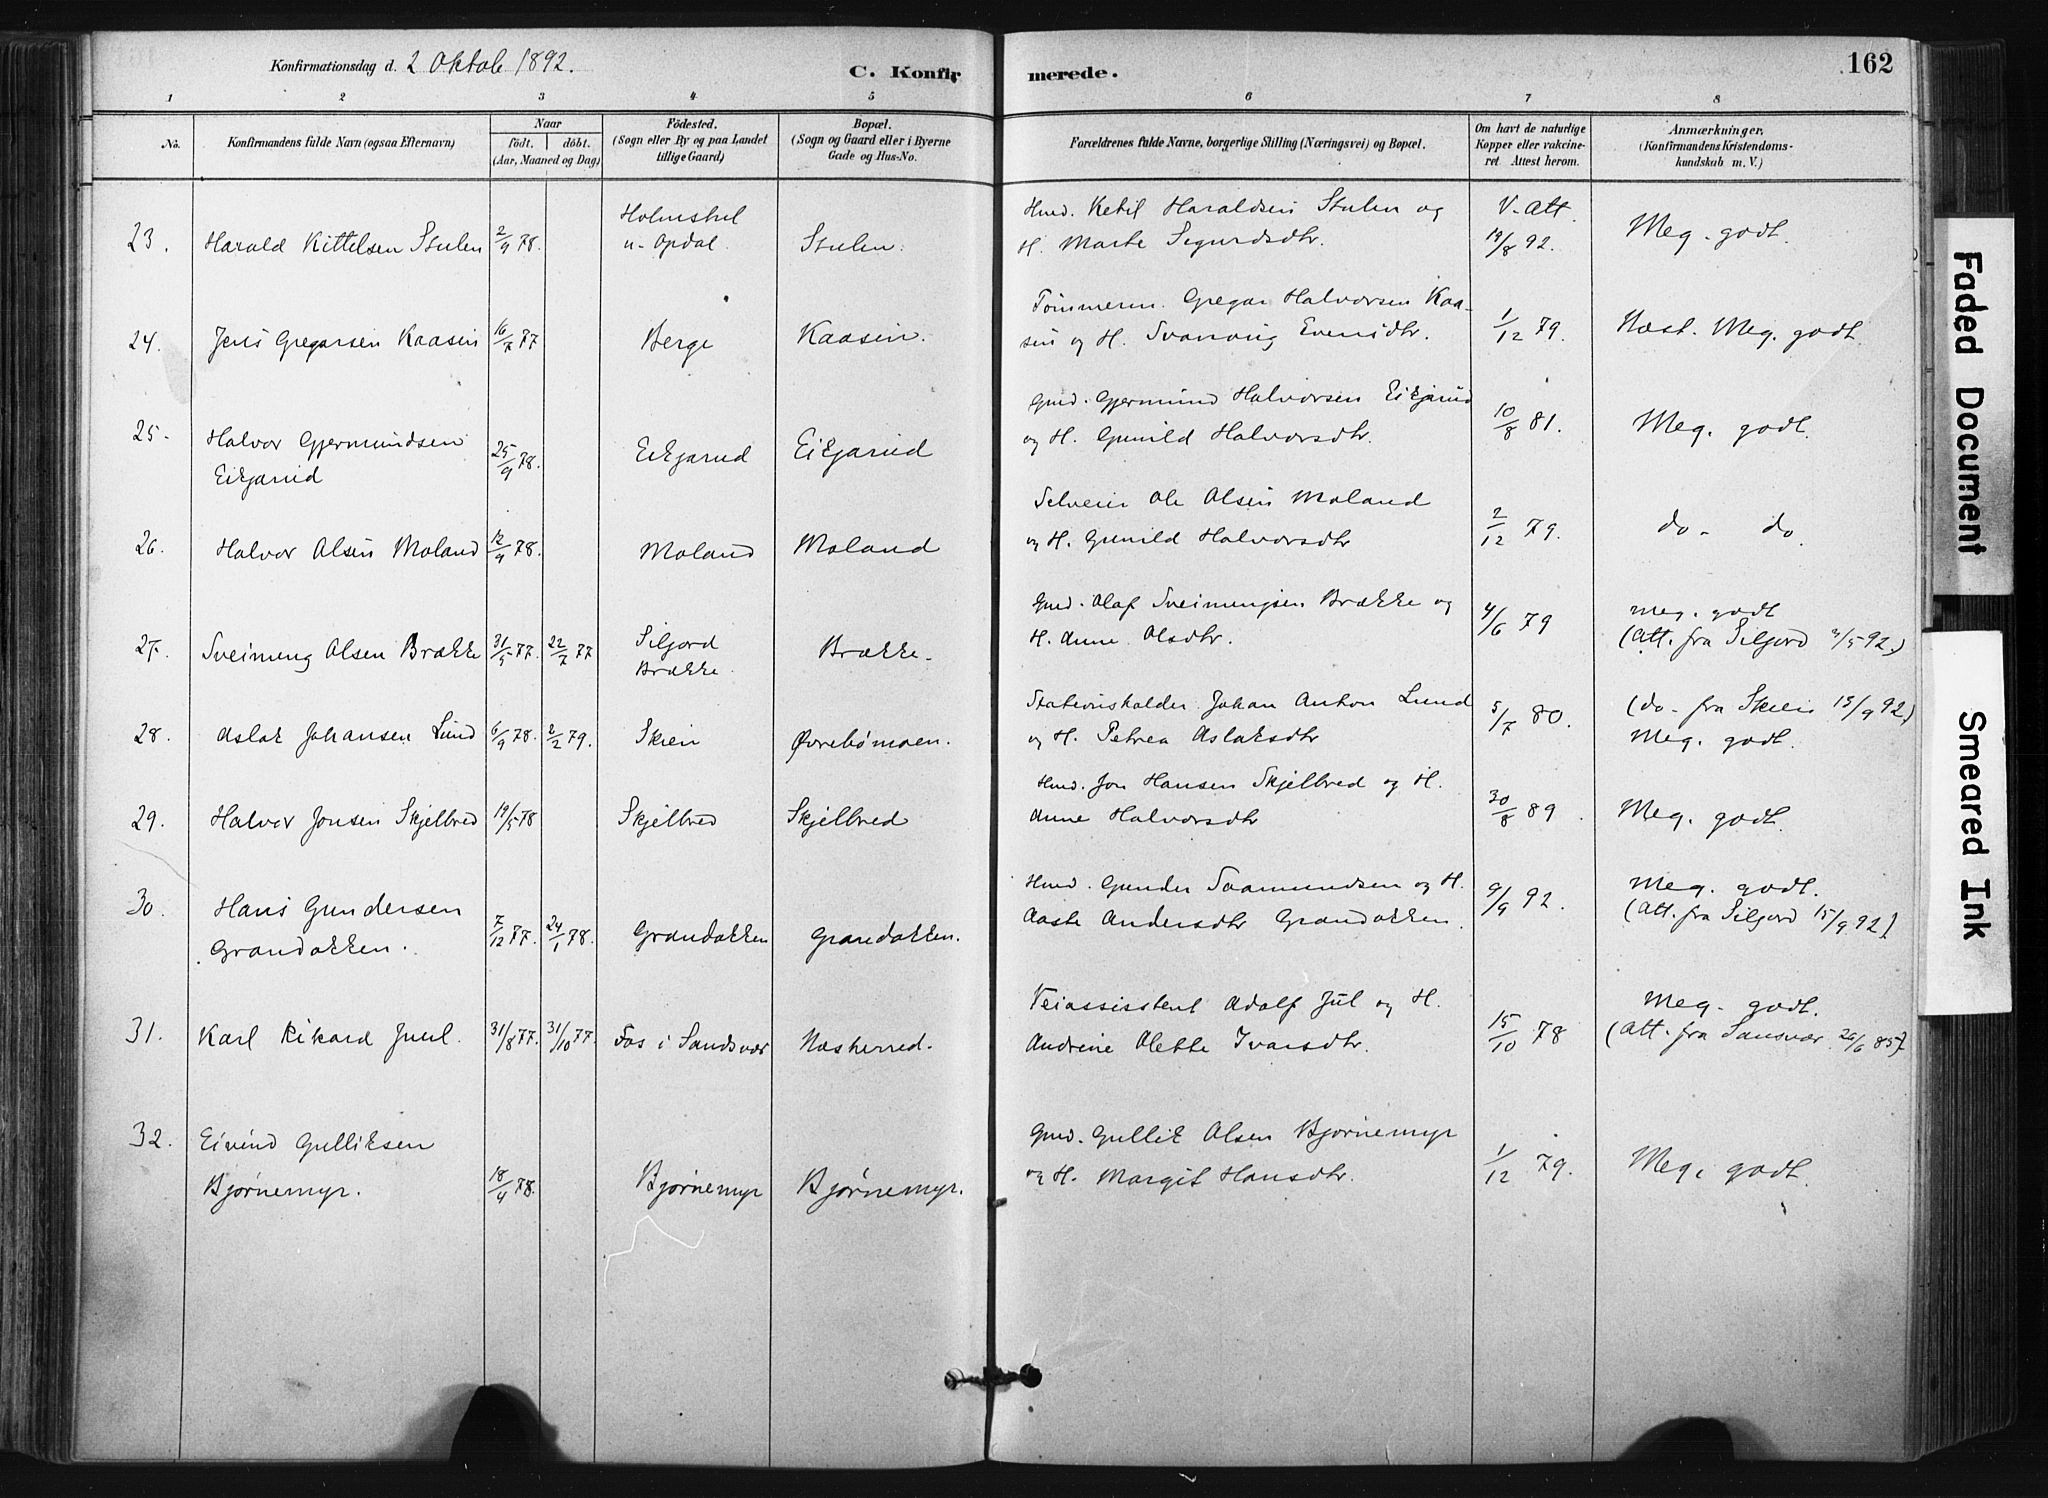 Konfirmationsdag d. 2 Oktob 1892.
C. Konfirmerede.
162
1 2 3 4 5 6 7 8
No.
Konfirmandens fulde Navn (ogsaa Efternavn)
Naar
født. døbt.
(Aar, Maaned og Dag)
Fødested.
(Sogn eller By og paa Landet
tillige Gaard)
Bopæl.
(Sogn og Gaard eller i Byerne
Gade og Hus-No.
Forældrenes fulde Navne, borgerlige Stilling (Næringsvei) og Bopæl.
Om havt de naturlige
Kopper eller vakcine-
ret Attest herom.
Anmærkninger.
(Konfirmandens Kristendoms-
kundskab m. V.)
23. Harald Kittelsen Stulen 2/9 78.
u. Opdal. Stulen.
Hmd. Ketil Haraldsen Stulen og
H. Marte Sigurdsdtr.
V. Att.
19/8 92. Meg. godt.
24. Jens Gregarsen Kaasin 16/7 77 Berge Kaasin.
Tømmerm. Gregar Halvorsen Kaa-
sin og H. Svanaug Evensdtr. 1/12 79. Næst. Meg. godt.
25. Halvor Gjermundsen
Eikjarud 25/9 78. Eikjarud Eikjarud
Gmd. Gjermund Halvorsen Eikjarud
og H. Gunild Halvorsdtr. 10/8 81. Meg. godt.
26. Halvor Olsen Moland 12/9 78. Moland Moland
Selveier Ole Olsen Moland
og H. Gunild Halvorsdtr 2/12 79. do. do.
27. Sveinung Olsen Brække 31/5 77. 22/7 77 Siljord
Brække. Brække.
Gmd. Olaf Sveinungsen Brække og
H. Anne Olsdtr. 4/6 79 Meg. godt
(Att. fra Siljord 2/5 92.)
28. Aslak Johansen Lund 6/9 78. 2/2 79. Skien Øvrebømoen.
Stationsholder Johan Anton Lund
og H. Petrea Aslaksdtr 5/7 80. (do. fra Skien 15/9 92)
Meg. godt.
29. Halvor Jonsen Skjelbred 19/5 78 Skjelbred Skjelbred
Hmd. Jon Hansen Skjelbred og H.
Anne Halvorsdtr 30/8 89. Meg. godt.
30. Hans Gundersen
Grandokken. 7/12 77. 24/1 78. Grandokken Grandokken.
Hmd. Gunder Saamundsen og H.
Aaste Andersdtr Grandokken. 9/9 92. Meg. godt.
(Att. fra Siljord 15/9 92).
31. Karl Rikard Juul. 31/8 77. 31/10 77. Fos i Sandsvær Næsherred.
Veiassisstent Adolf Jul og H.
Andrine Olette Ivarsdtr. 15/10 78 Meg. godt.
(Att. fra Sansvær 26/6 85).
32. Eivind Gulliksen
Bjørnemyr. 18/4 78. Bjørnemyr Bjørnemyr.
Gmd. Gullik Olsen Bjørnemyr
og H. Margit Hansdtr. 1/12 79. Meg. godt.
Faded Document
Smeared Ink